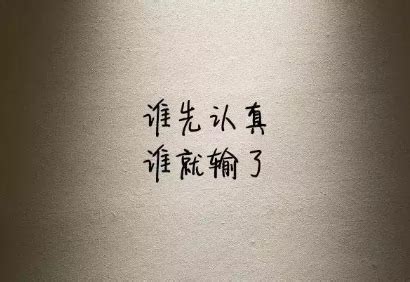 谁先认真
谁就输了